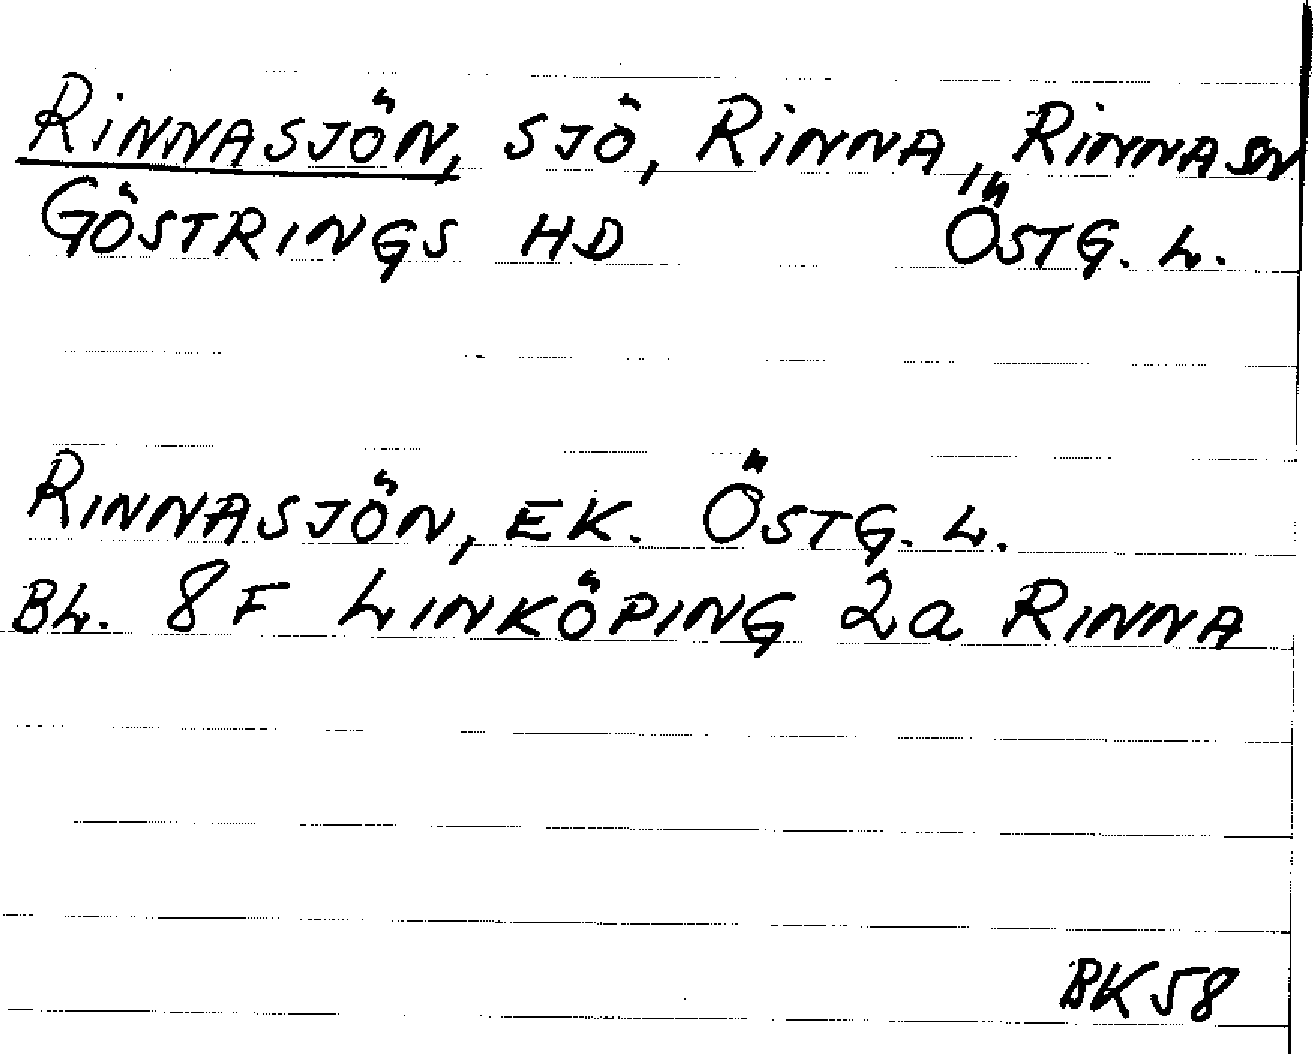 RINNASJÖN, SJÖ, RINNA, RINNA SN
GÖSTRINGS HD ÖSTG. L.
RINNASJÖN, EK. ÖSTG. L.
BL. 8F LINKÖPING 2a RINNA
BK58